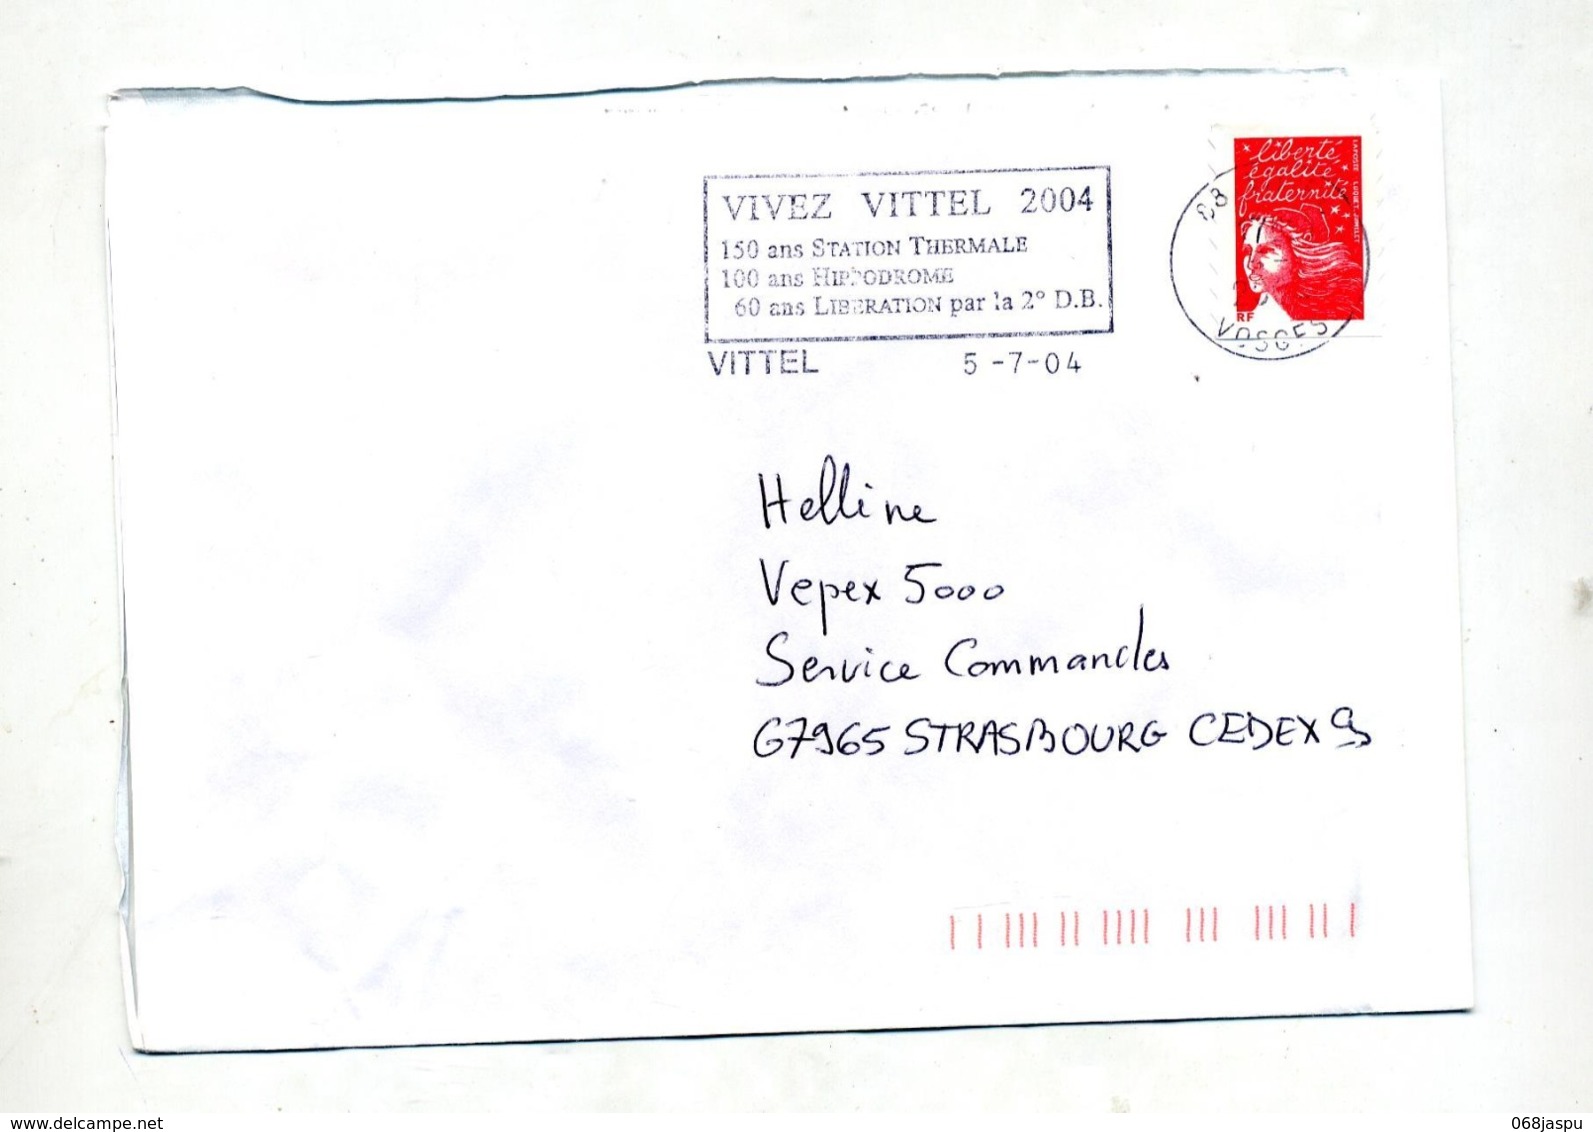 VIVEZ VITTEL 2004
150 ans STATION THERMALE
100 ans HIPPODROME
60 ans LIBERATION par la 2° D.B.
VITTEL 5 -7-04
liberté
égalité
fraternité
LA POSTE LUQUET JUMELET
RF
88
VOSGES
Helline
Vepex 5000
Service Commandes
67965 STRASBOURG CEDEX 9
delcampe.net
068jaspu